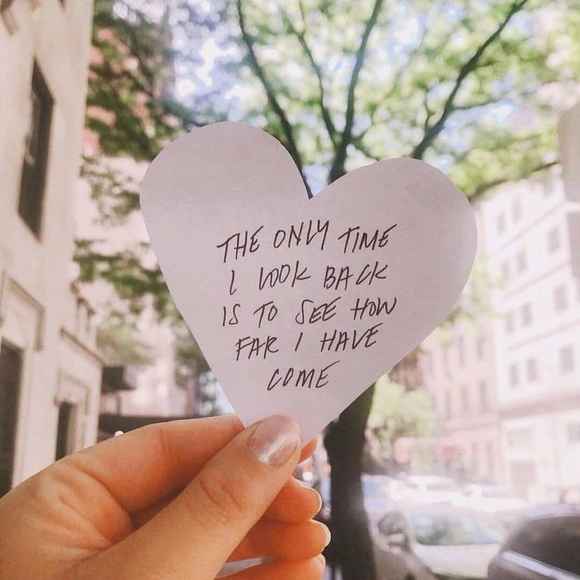 THE ONLY TIME
I LOOK BACK
IS TO SEE HOW
FAR I HAVE
COME